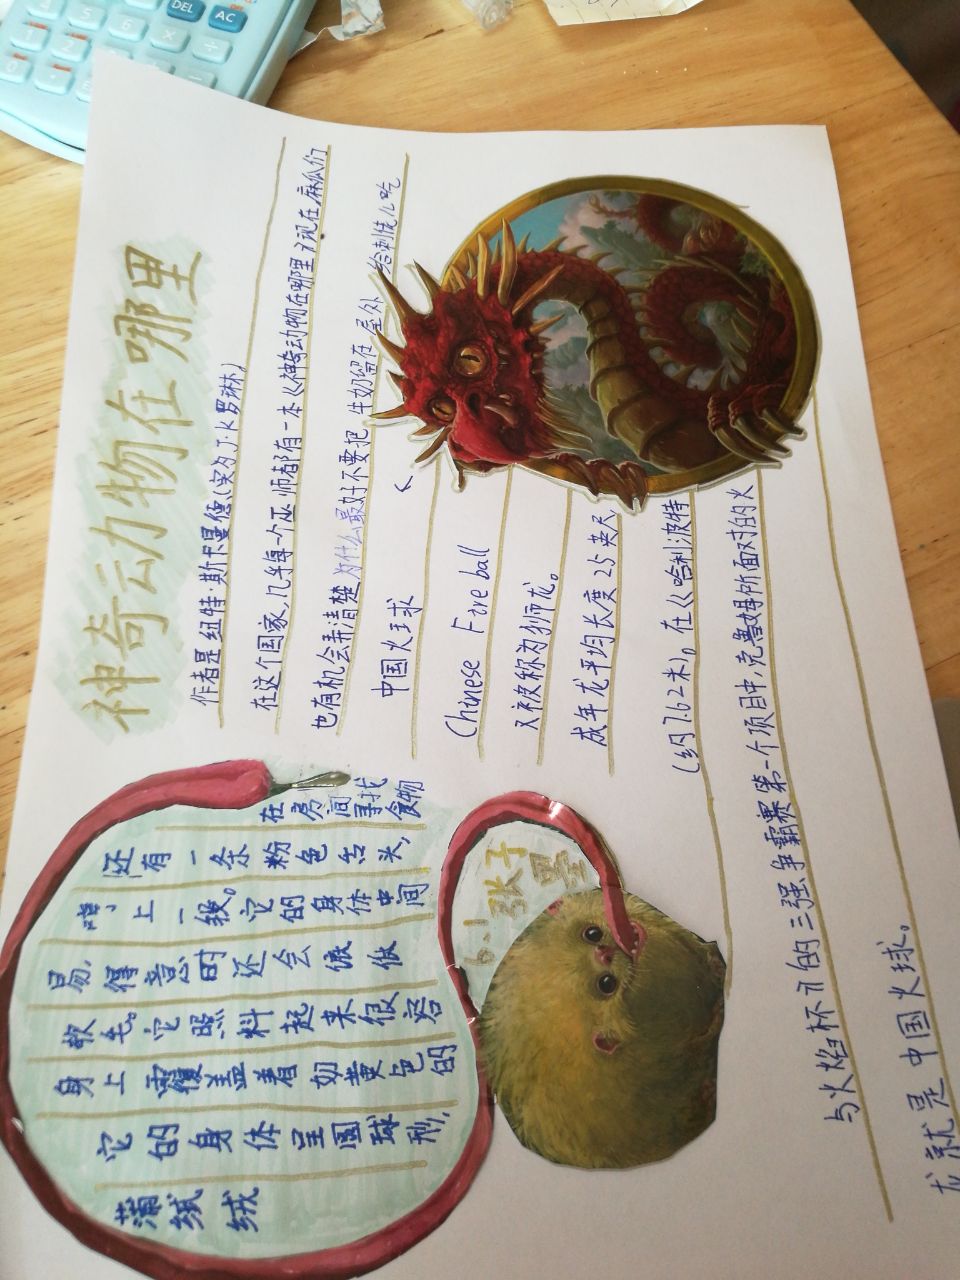 神奇动物在哪里
作者是纽特·斯卡曼德(实为J·K罗琳)
在这个国家,几乎每一个巫师都有一本《神奇动物在哪里》现在,麻瓜们
也有机会弄清楚为什么最好不要把牛奶留在屋外给刺猬儿吃
中国火球
Chinese Fireball
又被称为狮龙。
成年龙平均长度25英尺
(约7.62米)。在《哈利波特
与火焰杯》的三强争霸赛第一个项目中,克鲁姆所面对的火
龙就是中国火球。
蒲绒绒
它的身体呈圆球形,
身上覆盖着奶黄色的
软毛。它照料起来很容
易,得意时还会
上一段。它的身体中间
还有一条粉色舌头,
在房间寻找食物
6.1 张子
DEL
AC